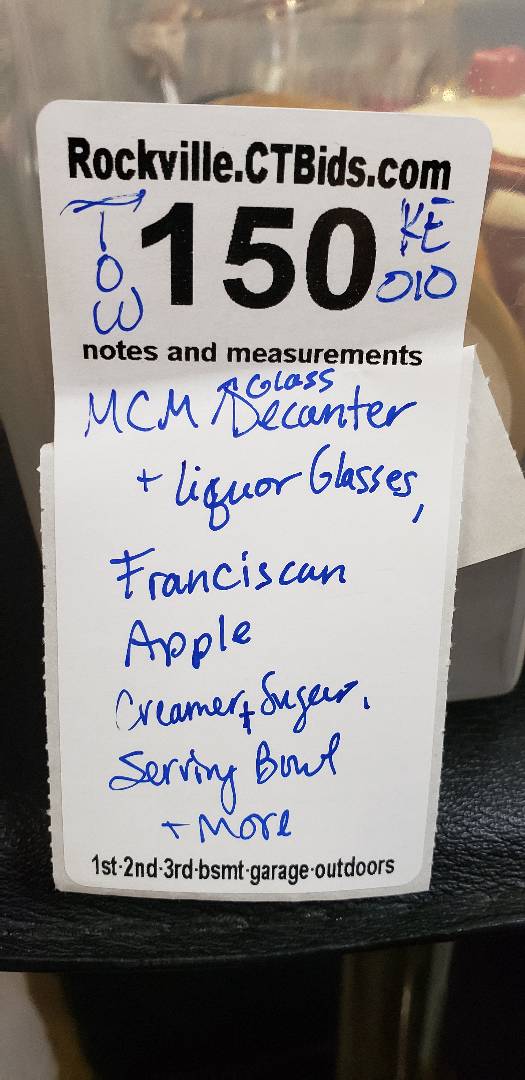 Rockville.CTBids.com
TOW 150 KE 010
notes and measurements
MCM ↑Glass Decanter
+ Liquor Glasses,
Franciscan
Apple
Creamer + Sugar,
Serving Bowl
+ More
1st·2nd·3rd·bsmt·garage·outdoors